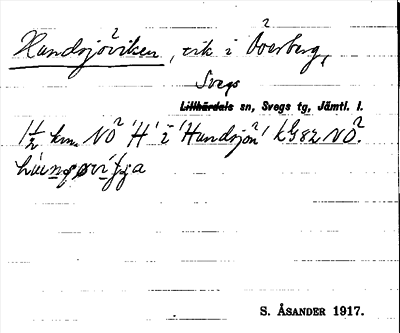 Hundsjöviken, vik i Överberg,
Svegs
Lillhärdals sn, Svegs tg, Jämtl. l.
1½ km NÖ 'H' i 'Hundsjön' kG82 NÖ.
S. ÅSANDER 1917.